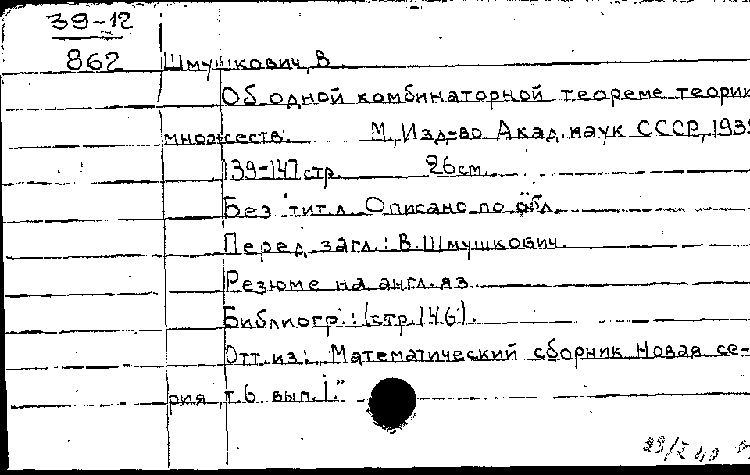 39-12
862
Шмушкович, В.
Об одной комбинаторной теореме теории
множеств. М., Изд-во Акад. наук СССР, 193
139-147 стр. 26 см.
Без тит. л. Описано по обл.
Перед загл.: В. Шмушкович.
Резюме на англ. яз.
Библиогр.: (стр. 146).
Отт. из: Математический сборник Новая се-
рия, т. 6 вып. 1."